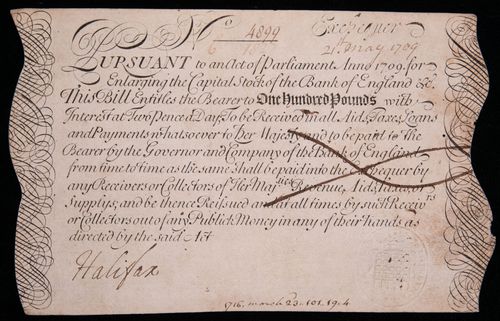 No 4899 Exchequer
21st May 1709
PURSUANT to an Act of Parliament Anno 1709 for
Enlarging the Capital Stock of the Bank of England &c.
This Bill Entitles the Bearer to One Hundred Pounds with
Interest at Two pence a Day To be Received in all Aids, Taxes, Loans
and Payments whatsoever to Her Majesty and to be paid to the
Bearer by the Governor and Company of the Bank of England
from time to time as the same shall be paid into the Exchequer by
any Receivers or Collectors of Her Majties Revenue, Aids, Taxes, or
Supplys, and be thence Reissued and at all times by such Receivrs
or Collectors out of any Publick Money in any of their hands as
directed by the said Act
Halifax
1716. march 23. 101. 19. 4